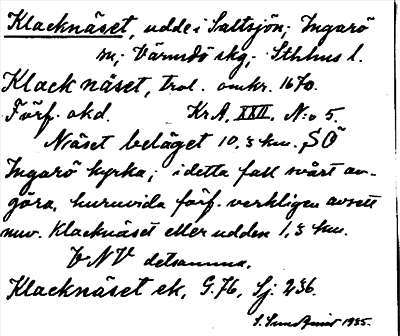 Klacknäset, udde i Saltsjön; Ingarö
sn; Värmdö skg; Sthlms l.
Klack näset, trol. omkr. 1670.
Förf. okd. KrA, XXII, N:o 5.
Näset beläget 10,3 km. SÖ
Ingarö kyrka; i detta fall svårt av-
göra, huruvida förf. verkligen avsett
nuv. Klacknäset eller udden 1,3 km.
VNV detsamma.
Klacknäset ek, G.76, Sj: 236.
S. 1935.